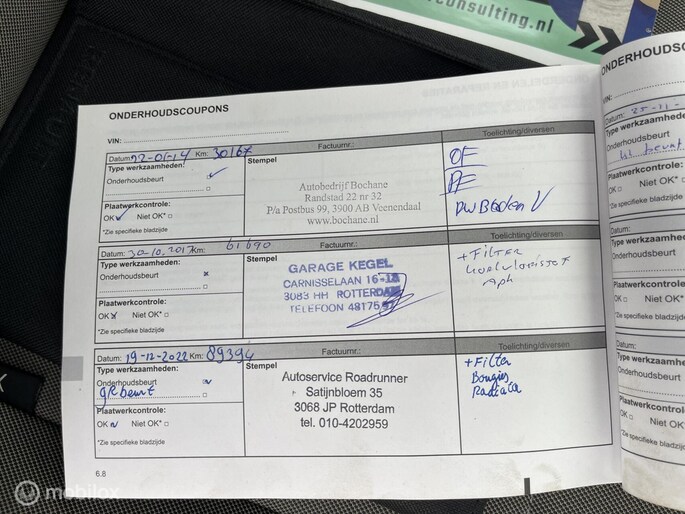 consulting.nl
ONDERHOUDSCOUPONS
VIN:
Datum: 22-01-14 Km: 30167
Factuurnr.:
Toelichting/diversen
Type werkzaamheden:
Stempel
Onderhoudsbeurt
Autobedrijf Bochane
Randstad 22 nr 32
P/a Postbus 99, 3900 AB Veenendaal
www.bochane.nl
OF
PF
Plaatwerkcontrole:
OK Niet OK*
*Zie specifieke bladzijde
Datum: 30-10.2017 Km: 61690
Factuurnr.:
Toelichting/diversen
Type werkzaamheden:
Stempel
Onderhoudsbeurt
GARAGE KEGEL
CARNISSELAAN 16-18
3083 HH ROTTERDAM
TELEFOON
+ FILTER
Plaatwerkcontrole:
OK Niet OK*
*Zie specifieke bladzijde
Datum: 19-12-2022 Km: 89394
Factuurnr.:
Toelichting/diversen
Type werkzaamheden:
Stempel
Onderhoudsbeurt
GR beurt
Autoservice Roadrunner
Satijnbloem 35
3068 JP Rotterdam
tel. 010-4202959
+ Filter
Bougies
Plaatwerkcontrole:
OK Niet OK*
*Zie specifieke bladzijde
6.8
ONDERHOUDSCOUPONS
VIN:
Datum:
Type werkzaamheden:
Onderhoudsbeurt
Plaatwerkcontrole:
OK Niet OK*
*Zie specifieke bladzijde
Datum:
Type werkzaamheden:
Onderhoudsbeurt
Plaatwerkcontrole:
OK Niet OK*
*Zie specifieke bladzijde
Datum:
Type werkzaamheden:
Onderhoudsbeurt
Plaatwerkcontrole:
OK Niet OK*
*Zie specifieke
mobilox